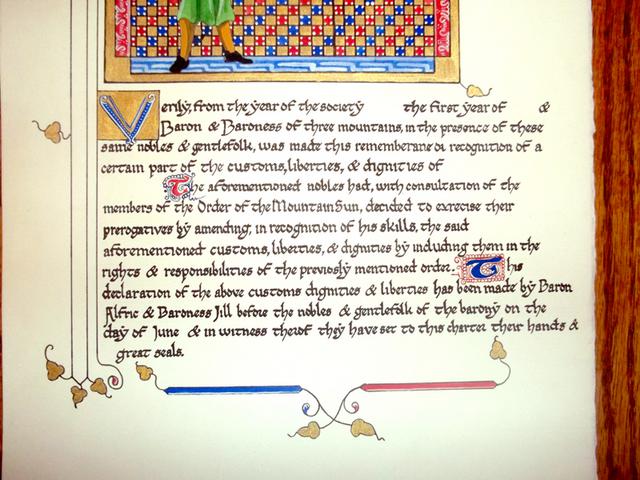 Verily, from the year of the society the first year of &
Baron & Baroness of three mountains, in the presence of these
same nobles & gentlefolk, was made this rememberance in recognition of a
certain part of the customs, liberties, & dignities of
The aforementioned nobles had, with consultation of the
members of the Order of the Mountain Sun, decided to exercise their
prerogatives by amending, in recognition of his skills, the said
aforementioned customs, liberties, & dignities by including them in the
rights & responsibilities of the previosly mentioned order. This
declaration of the above customs dignities & liberties has been made by Baron
Alfric & Baroness Jill before the nobles & gentlefolk of the barony on the
day of June & in witness therof they have set to this charter their hands &
great seals.